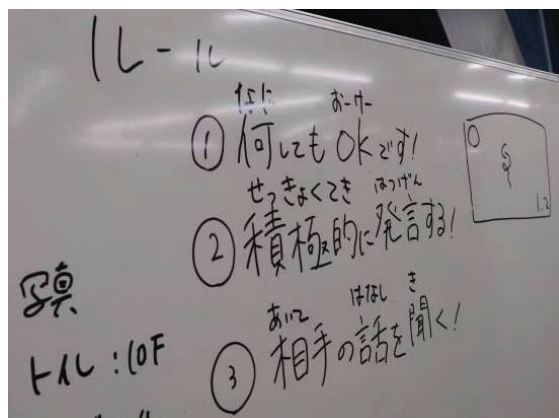 ルール
なに おーけー
① 何してもOKです!
せっきょくてき はつげん
② 積極的に発言する!
あいて はなし き
③ 相手の話を聞く!
写真
トイレ:10F